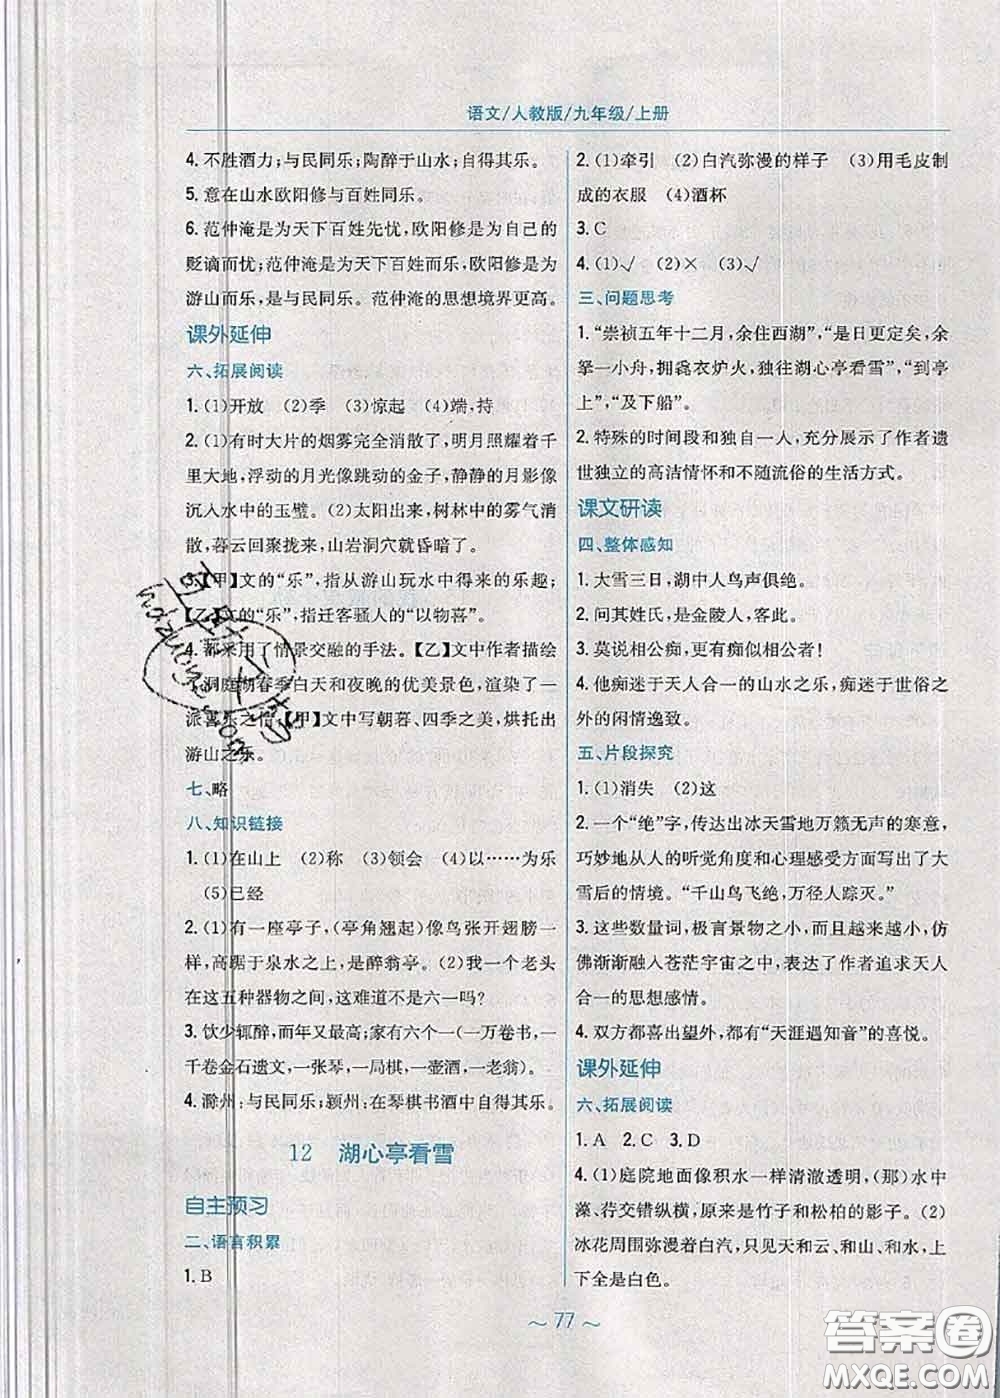 语文/人教版/九年级/上册
4. 不胜酒力;与民同乐;陶醉于山水;自得其乐。
5. 意在山水欧阳修与百姓同乐。
6. 范仲淹是为天下百姓先忧,欧阳修是为自己的
贬谪而忧;范仲淹是为天下百姓而乐,欧阳修是为
游山而乐,是与民同乐。范仲淹的思想境界更高。
课外延伸
六、拓展阅读
1. (1)开放 (2)季 (3)惊起 (4)端,持
2. (1)有时大片的烟雾完全消散了,明月照耀着千
里大地,浮动的月光像跳动的金子,静静的月影像
沉入水中的玉璧。(2)太阳出来,树林中的雾气消
散,暮云回聚拢来,山岩洞穴就昏暗了。
3.【甲】文的“乐”,指从游山玩水中得来的乐趣;
【乙】文的“乐”,指迁客骚人的“以物喜”。
4. 都采用了情景交融的手法。【乙】文中作者描绘
了洞庭湖春季白天和夜晚的优美景色,渲染了一
派喜乐之情,【甲】文中写朝暮、四季之美,烘托出
游山之乐。
七、略
八、知识链接
1. (1)在山上 (2)称 (3)领会 (4)以……为乐
(5)已经
2. (1)有一座亭子,(亭角翘起)像鸟张开翅膀一
样,高踞于泉水之上,是醉翁亭。(2)我一个老头
在这五种器物之间,这难道不是六一吗?
3. 饮少辄醉,而年又最高;家有六个一(一万卷书,一
千卷金石遗文,一张琴,一局棋,一壶酒,一老翁)。
4. 滁州:与民同乐;颍州:在琴棋书酒中自得其乐。
12 湖心亭看雪
自主预习
二、语言积累
1. B
2. (1)牵引 (2)白汽弥漫的样子 (3)用毛皮制
成的衣服 (4)酒杯
3. C
4. (1)√ (2)× (3)√
三、问题思考
1.“崇祯五年十二月,余住西湖”,“是日更定矣,余
拏一小舟,拥毳衣炉火,独往湖心亭看雪”,“到亭
上”,“及下船”。
2. 特殊的时间段和独自一人,充分展示了作者遗
世独立的高洁情怀和不随流俗的生活方式。
课文研读
四、整体感知
1. 大雪三日,湖中人鸟声俱绝。
2. 问其姓氏,是金陵人,客此。
3. 莫说相公痴,更有痴似相公者!
4. 他痴迷于天人合一的山水之乐,痴迷于世俗之
外的闲情逸致。
五、片段探究
1. (1)消失 (2)这
2. 一个“绝”字,传达出冰天雪地万籁无声的寒意,
巧妙地从人的听觉角度和心理感受写出了大
雪后的情境。“千山鸟飞绝,万径人踪灭。”
3. 这些数量词,极言景物之小,而且越来越小,仿
佛渐渐融入苍茫宇宙之中,表达了作者追求天人
合一的思想感情。
4. 双方都喜出望外,都有“天涯遇知音”的喜悦。
课外延伸
六、拓展阅读
1. A 2. C 3. D
4. (1)庭院地面像积水一样清澈透明,(那)水中
藻、荇交错纵横,原来是竹子和松柏的影子。(2)
冰花周围弥漫着白汽,只见天和云、和山、和水,上
下全是白色。
~ 77 ~
答案圈
MXQE.COM